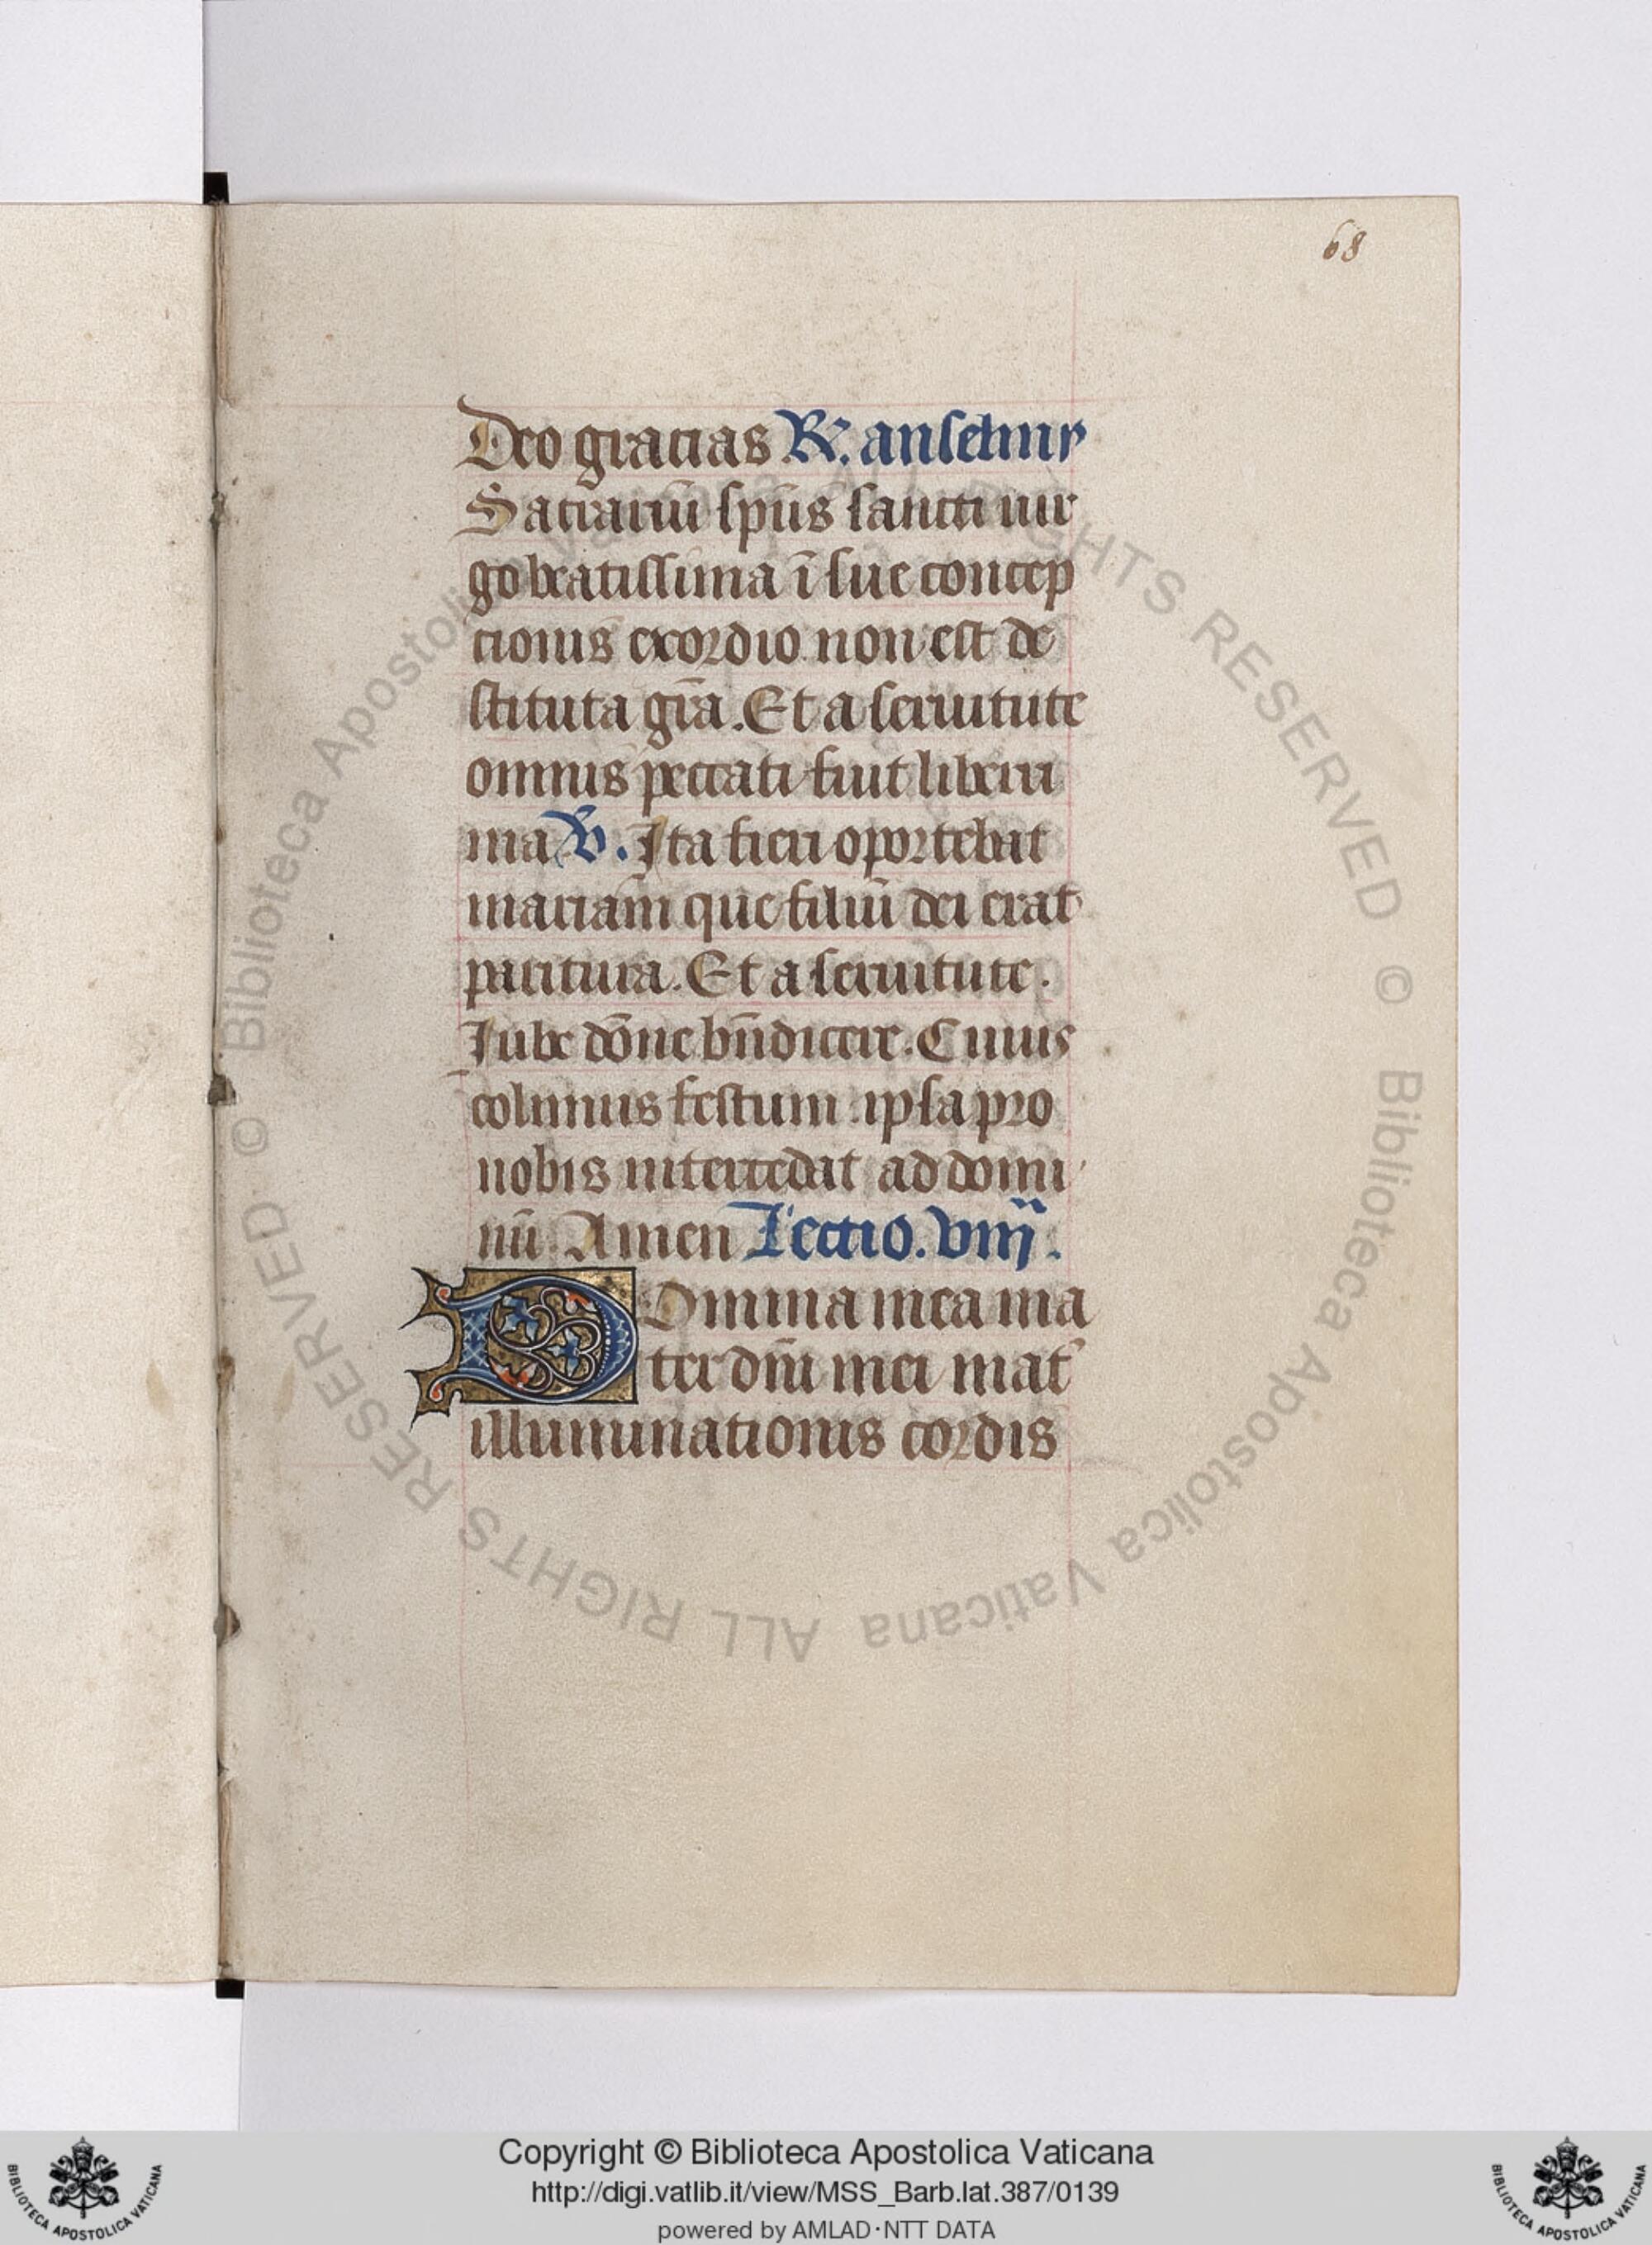 68
Deo gracias ℟. anselmus
Sacrariũ spũs sancti uir
go beatissima ĩ sue concep
tionis exordio non est de
stituta gr̃a. Et a seruitute
omnis peccati fuit liberri
ma ℣. Ita fieri oportebat
mariam que filiũ dei erat
paritura. Et a seruitute.
Iube dõne bñdicere. Cuius
colimus festum ipsa pro
nobis intercedat ad domi
nũ Amen Lectio. viij.
Domina mea ma
ter dñi mei mat̃
illuminationis cordis
© Biblioteca Apostolica Vaticana ALL RIGHTS RESERVED © Biblioteca Apostolica Vaticana ALL RIGHTS RESERVED
Copyright © Biblioteca Apostolica Vaticana
http://digi.vatlib.it/view/MSS_Barb.lat.387/0139
powered by AMLAD·NTT DATA
BIBLIOTECA APOSTOLICA VATICANA
BIBLIOTECA APOSTOLICA VATICANA